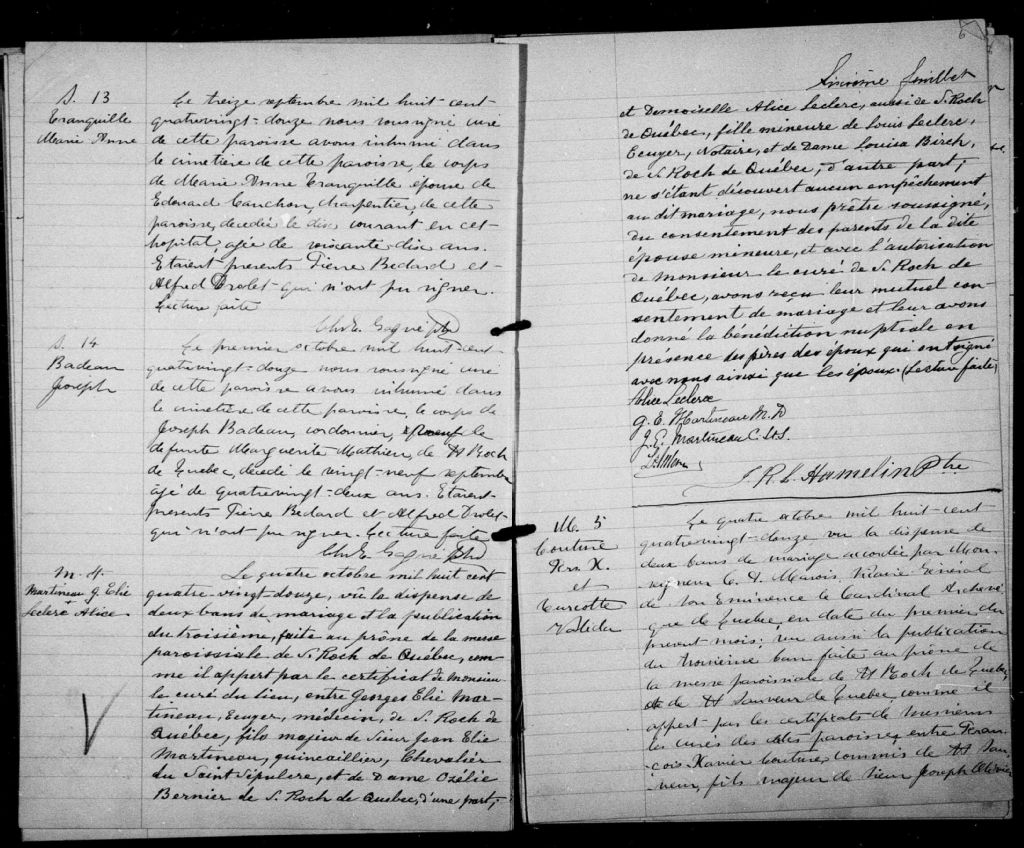 S. 13
Tranquille
Marie Anne
Le treize septembre mil huit-cent-
quatrevingt-douze nous soussigné curé
de cette paroisse avons inhumé dans
le cimetière de cette paroisse, le corps
de Marie Anne Tranquille épouse de
Edouard Cauchon, charpentier, de cette
paroisse, decedée le dix courant en cet-
hopital, agée de soixante dix ans.
Etaient presents Pierre Bedard et-
Alfred Drolet- qui n'ont pu signer.
Lecture faite
Chs E. Gagné Ptre
S. 14
Badeau
Joseph
Le premier octobre mil huit-cent-
quatrevingt-douze nous soussigné curé
de cette paroisse avons inhumé dans
le cimetière de cette paroisse, le corps de
Joseph Badeau, cordonnier, époux de
defunte Marguerite Mathieu, de St Roch
de Quebec, decedé le vingt-neuf septembre
âgé de quatrevingt-deux ans. Etaient-
presents Pierre Bedard et Alfred Drolet-
qui n'ont pu signer. Lecture faite
Chs E. Gagné Ptre
M. 4.
Martineau G. Elie
&
Leclerc Alice
Le quatre octobre mil huit cent
quatre-vingt douze, vû la dispense de
deux bans de mariage et la publication
du troisième, faite au prône de la messe
paroissiale de S. Roch de Québec, com-
me il appert par le certificat de Monsieur
le curé du lieu, entre Georges Elie Mar-
tineau, Ecuyer, médecin, de S. Roch de
Québec, fils majeur de Sieur Jean Elie
Martineau, quincaillier, Chevalier
du Saint Sépulcre, et de Dame Ozélie
Bernier de S. Roch de Québec, d'une part;
6
Sixième feuillet
et Demoiselle Alice Leclerc, aussi de S. Roch
de Québec, fille mineure de Louis Leclerc,
Ecuyer, Notaire, et de Dame Louisa Birch,
de S. Roch de Québec, d'autre part;
ne s'étant découvert aucun empêchement
au dit mariage, nous prêtre soussigné,
du consentement des parents de la dite
épouse mineure, et avec l'autorisation
de monsieur le curé de S. Roch de
Québec, avons reçu leur mutuel con-
sentement de mariage et leur avons
donné la bénédiction nuptiale en
présence des pères des époux qui ont signé
avec nous ainsi que les époux (Lecture faite)
Alice Leclerc
G. E. Martineau M. D
J. E. Martineau C. St S.
J. R. L. Hamelin Ptre
M. 5
Couture
Frs X.
et
Turcotte
Valéda
Le quatre octobre mil huit-cent
quatrevingt-douze vu la dispense de
deux bans de mariage accordée par Mon-
seigneur C. A. Marois, Vicaire Général
de Son Eminence le Cardinal Archevê-
que de Quebec en date du premier du
present mois; vu aussi la publication
du troisième ban faite au prône de
la messe paroissiale de St Roch de Quebec,
et de St Sauveur de Quebec comme il
appert par les certificats de Messieurs
les curés des dites paroisses, entre Fran-
çois Xavier Couture, commis de St Sau-
veur, fils majeur de Sieur Joseph Olivier